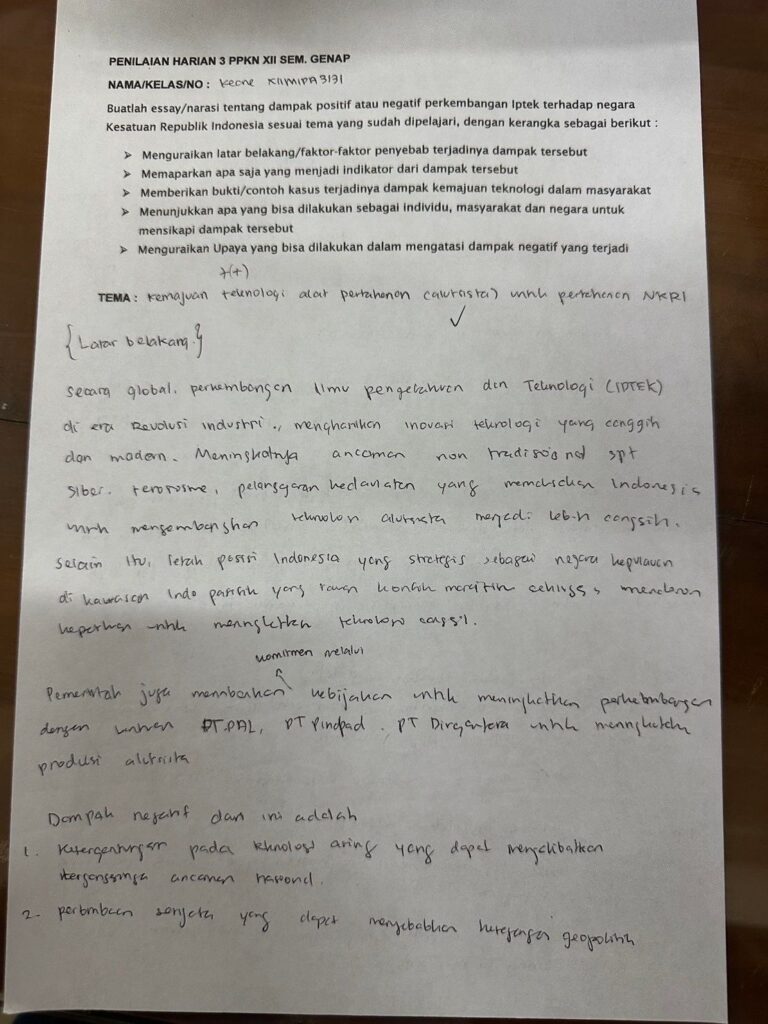 PENILAIAN HARIAN 3 PPKN XII SEM. GENAP
NAMA/KELAS/NO : Keone XIIMIPA3/31
Buatlah essay/narasi tentang dampak positif atau negatif perkembangan Iptek terhadap negara
Kesatuan Republik Indonesia sesuai tema yang sudah dipelajari, dengan kerangka sebagai berikut :
➢ Menguraikan latar belakang/faktor-faktor penyebab terjadinya dampak tersebut
➢ Memaparkan apa saja yang menjadi indikator dari dampak tersebut
➢ Memberikan bukti/contoh kasus terjadinya dampak kemajuan teknologi dalam masyarakat
➢ Menunjukkan apa yang bisa dilakukan sebagai individu, masyarakat dan negara untuk
mensikapi dampak tersebut
➢ Menguraikan Upaya yang bisa dilakukan dalam mengatasi dampak negatif yang terjadi
TEMA : Kemajuan teknologi alat pertahanan (alutsista) untuk pertahanan NKRI
{Latar belakang.}
Secara global, perkembangan Ilmu pengetahuan dan Teknologi (IPTEK)
di era Revolusi Industri., menghasilkan inovasi teknologi yang canggih
dan modern. Meningkatnya ancaman non tradisional spt
siber. terorisme, pelanggaran kedaulatan yang memaksakan Indonesia
untuk mengembangkan teknologi alutsista menjadi lebih canggih.
Selain itu, letak posisi Indonesia yang strategis sebagai negara kepulauan
di kawasan Indo pasifik yang rawan konflik maritim sehingga mendorong
keperluan untuk meningkatkan teknologi canggih.
komitmen melalui
Pemerintah juga memberikan kebijakan untuk meningkatkan perkembangan
dengan PT.PAL, PT Pindad. PT Dirgantara untuk meningkatkan
produksi alutsista
Dampak negatif dari ini adalah
1. Ketergantungan pada teknologi asing yang dapat mengakibatkan
ancaman nasional.
2. perlombaan senjata yang dapat menyebabkan ketegangan geopolitik